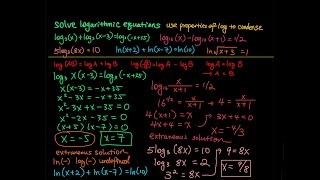 solve logarithmic equations use properties of log to condense
log₃(x)+log₃(x-3)=log₃(-x+35) log₁₆(x)-log₁₆(x+1)=1/2
5log₃(8x)=10 ln(x+2)+ln(x-7)=ln(10) ln√x+3 =1
log(AB)=log A + log B log(A/B)=log A - log B log A = log B → A = B
log₃ x(x-3)=log₃(-x+35)
x(x-3) = -x+35
x²-3x = -x+35
x²-3x+x-35=0
x²-2x-35=0
(x+5)(x-7)=0
x=-5 x=7
extraneous solution
ln(-) log(-) undefined
ln(x+2)+ln(x-7)=ln(10)
log₁₆ x/x+1 = 1/2
16^1/2 = x/x+1 → 4 = x/x+1
4(x+1)=x
4x+4=x x=-4/3
extraneous solution
5log₃(8x)=10 9=8x
log₃ 8x=2 x=9/8
3²=8x